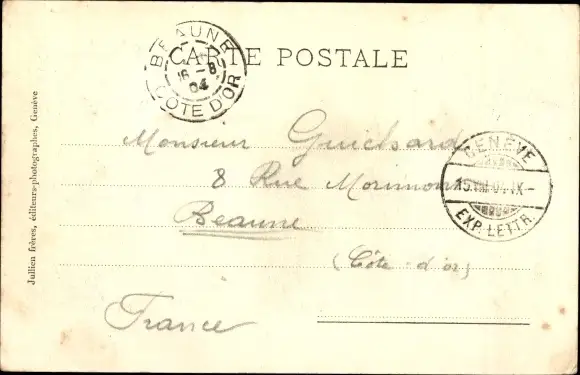 CARTE POSTALE
BEAUNE
16 - 8
04
COTE D'OR
Monsieur Guichard
8 Rue Morimont
Beaune
(Côte d'or)
France
GENÈVE
15.VIII.04.IX-
EXP. LETTR.
Jullien frères, éditeurs-photographes, Genève